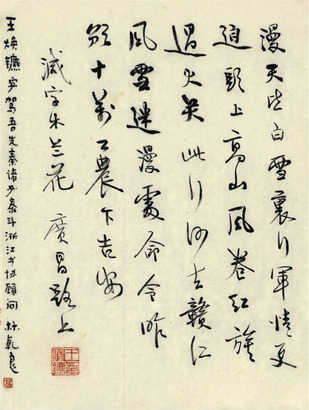 漫天皆白雪裏行軍情更
迫頭上高山風卷紅旗
過大關此行何去贛江
風雪迷漫處命令昨
頒十萬工農下吉安
減字木兰花 廣昌路上
王焕鑣字駕吾先秦諸子泰斗浙江书协顧问 林乾良